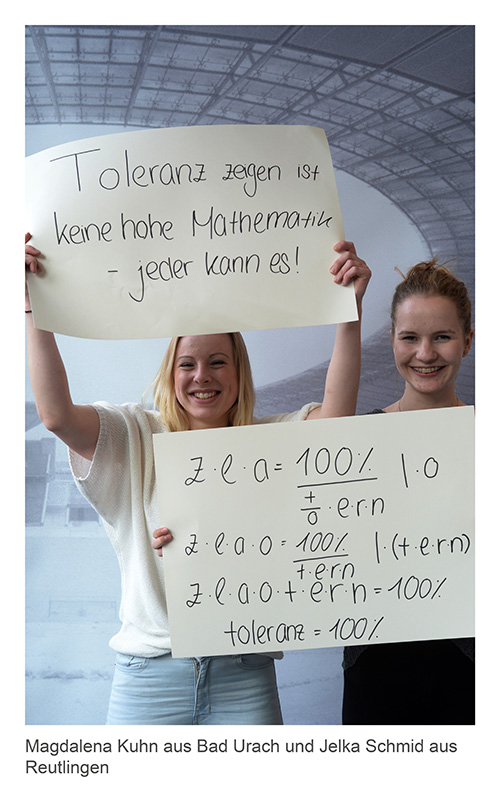 Toleranz zeigen ist
keine hohe Mathematik
- jeder kann es!
z·l·a = 100% / (t/o · e·r·n) | ·o
z·l·a·o = 100% / (t·e·r·n) | ·(t·e·r·n)
z·l·a·o·t·e·r·n = 100%
toleranz = 100%
Magdalena Kuhn aus Bad Urach und Jelka Schmid aus
Reutlingen